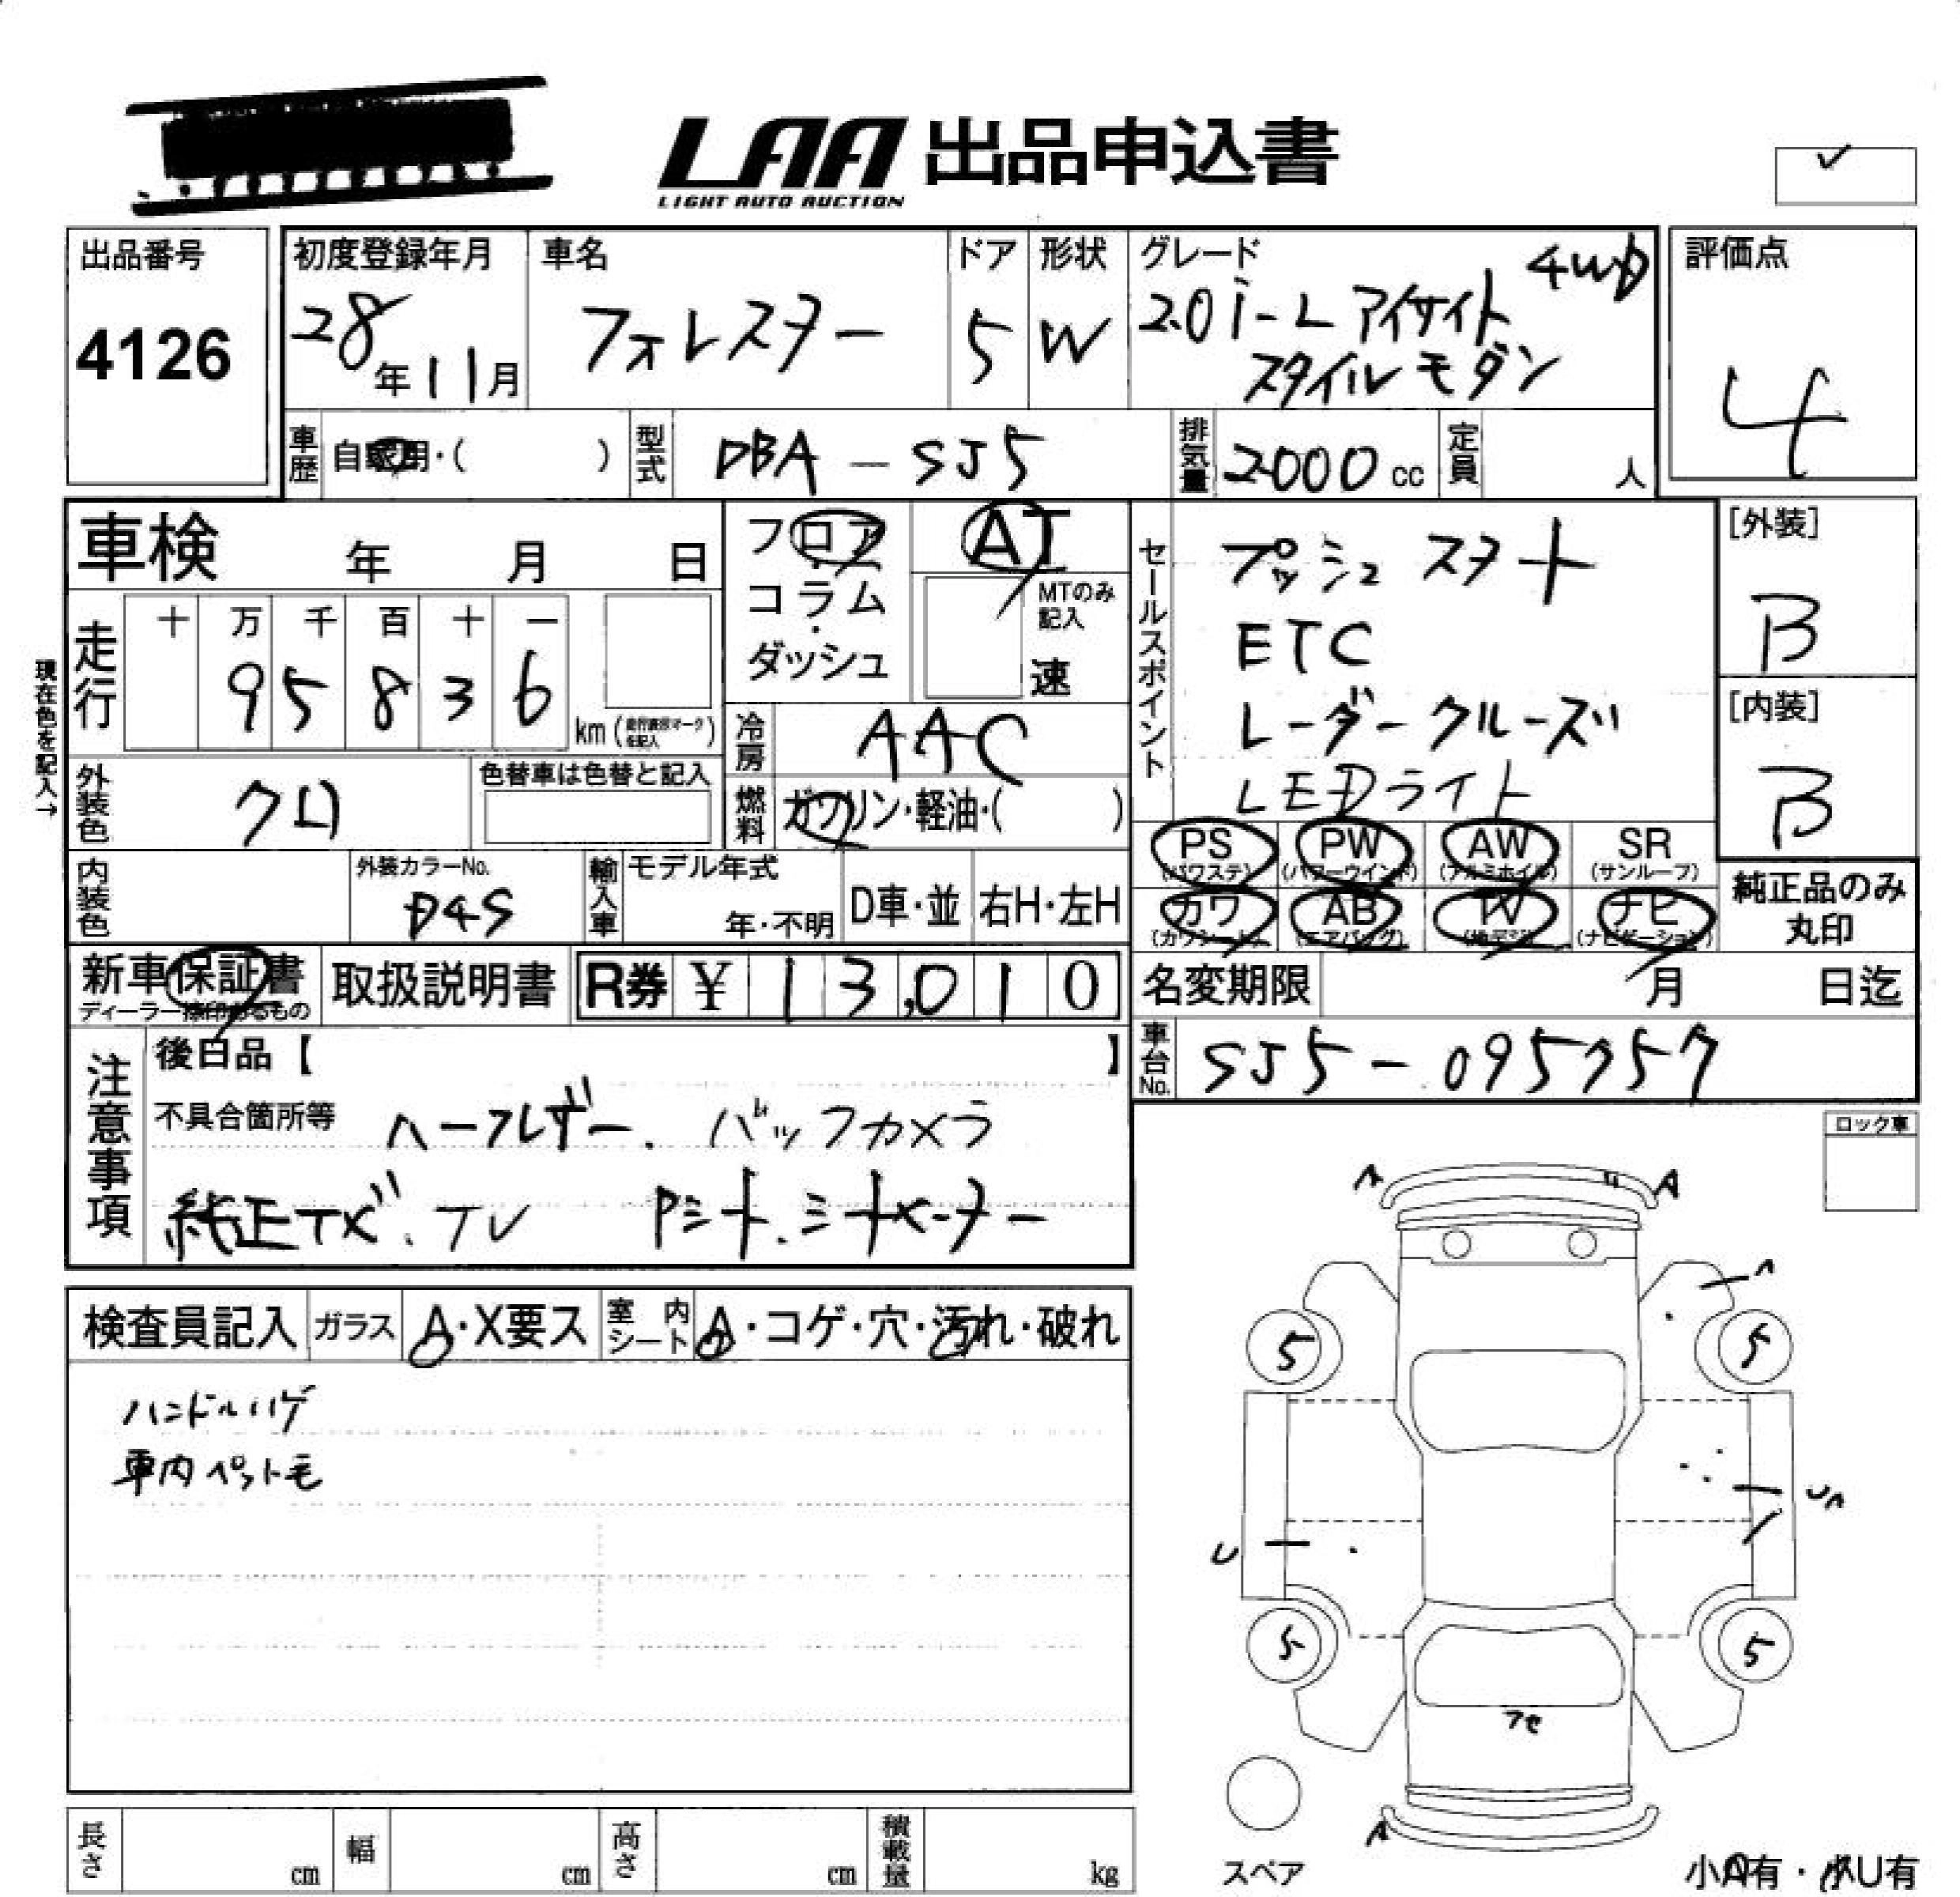 LAA 出品申込書
LIGHT AUTO AUCTION
出品番号
4126
初度登録年月
28年11月
車名
フォレスター
ドア
5
形状
W
グレード
4WD
2.0i-L アイサイト
スタイルモダン
評価点
4
車歴
自家用・( )
型式
DBA-SJ5
排気量
2000 cc
定員
人
車検 年 月 日
フロア・コラム・ダッシュ
AT
MTのみ記入
速
セールスポイント
プッシュスタート
ETC
レーダークルーズ
LEDライト
[外装]
B
[内装]
B
現在色を記入→
走行
十 万 千 百 十 一
9 5 8 3 6
km
冷房
AAC
外装色
クロ
色替車は色替と記入
燃料
ガソリン・軽油・( )
PS (パワステ)
PW (パワーウインド)
AW (アルミホイル)
SR (サンルーフ)
カワ (カワシート)
AB (エアバッグ)
TV (地デジ)
ナビ (ナビゲーション)
純正品のみ丸印
内装色
外装カラーNo.
D4S
輸入車
モデル年式
年・不明
D車・並
右H・左H
新車保証書
ディーラー捺印あるもの
取扱説明書
R券 ¥ 13,010
名変期限 月 日迄
車台No.
SJ5-095757
注意事項
後日品【 】
不具合箇所等 ハーフレザー. バックカメラ
純正ナビ.TV Pシート.シートヒーター
ロック車
検査員記入
ガラス
A・X要ス
室内シート
A・コゲ・穴・汚れ・破れ
ハンドルハゲ
車内ペット毛
A
U
A
A
5
5
UA
U
5
5
フセ
A
スペア
小A有・小U有
長さ cm
幅 cm
高さ cm
積載量 kg